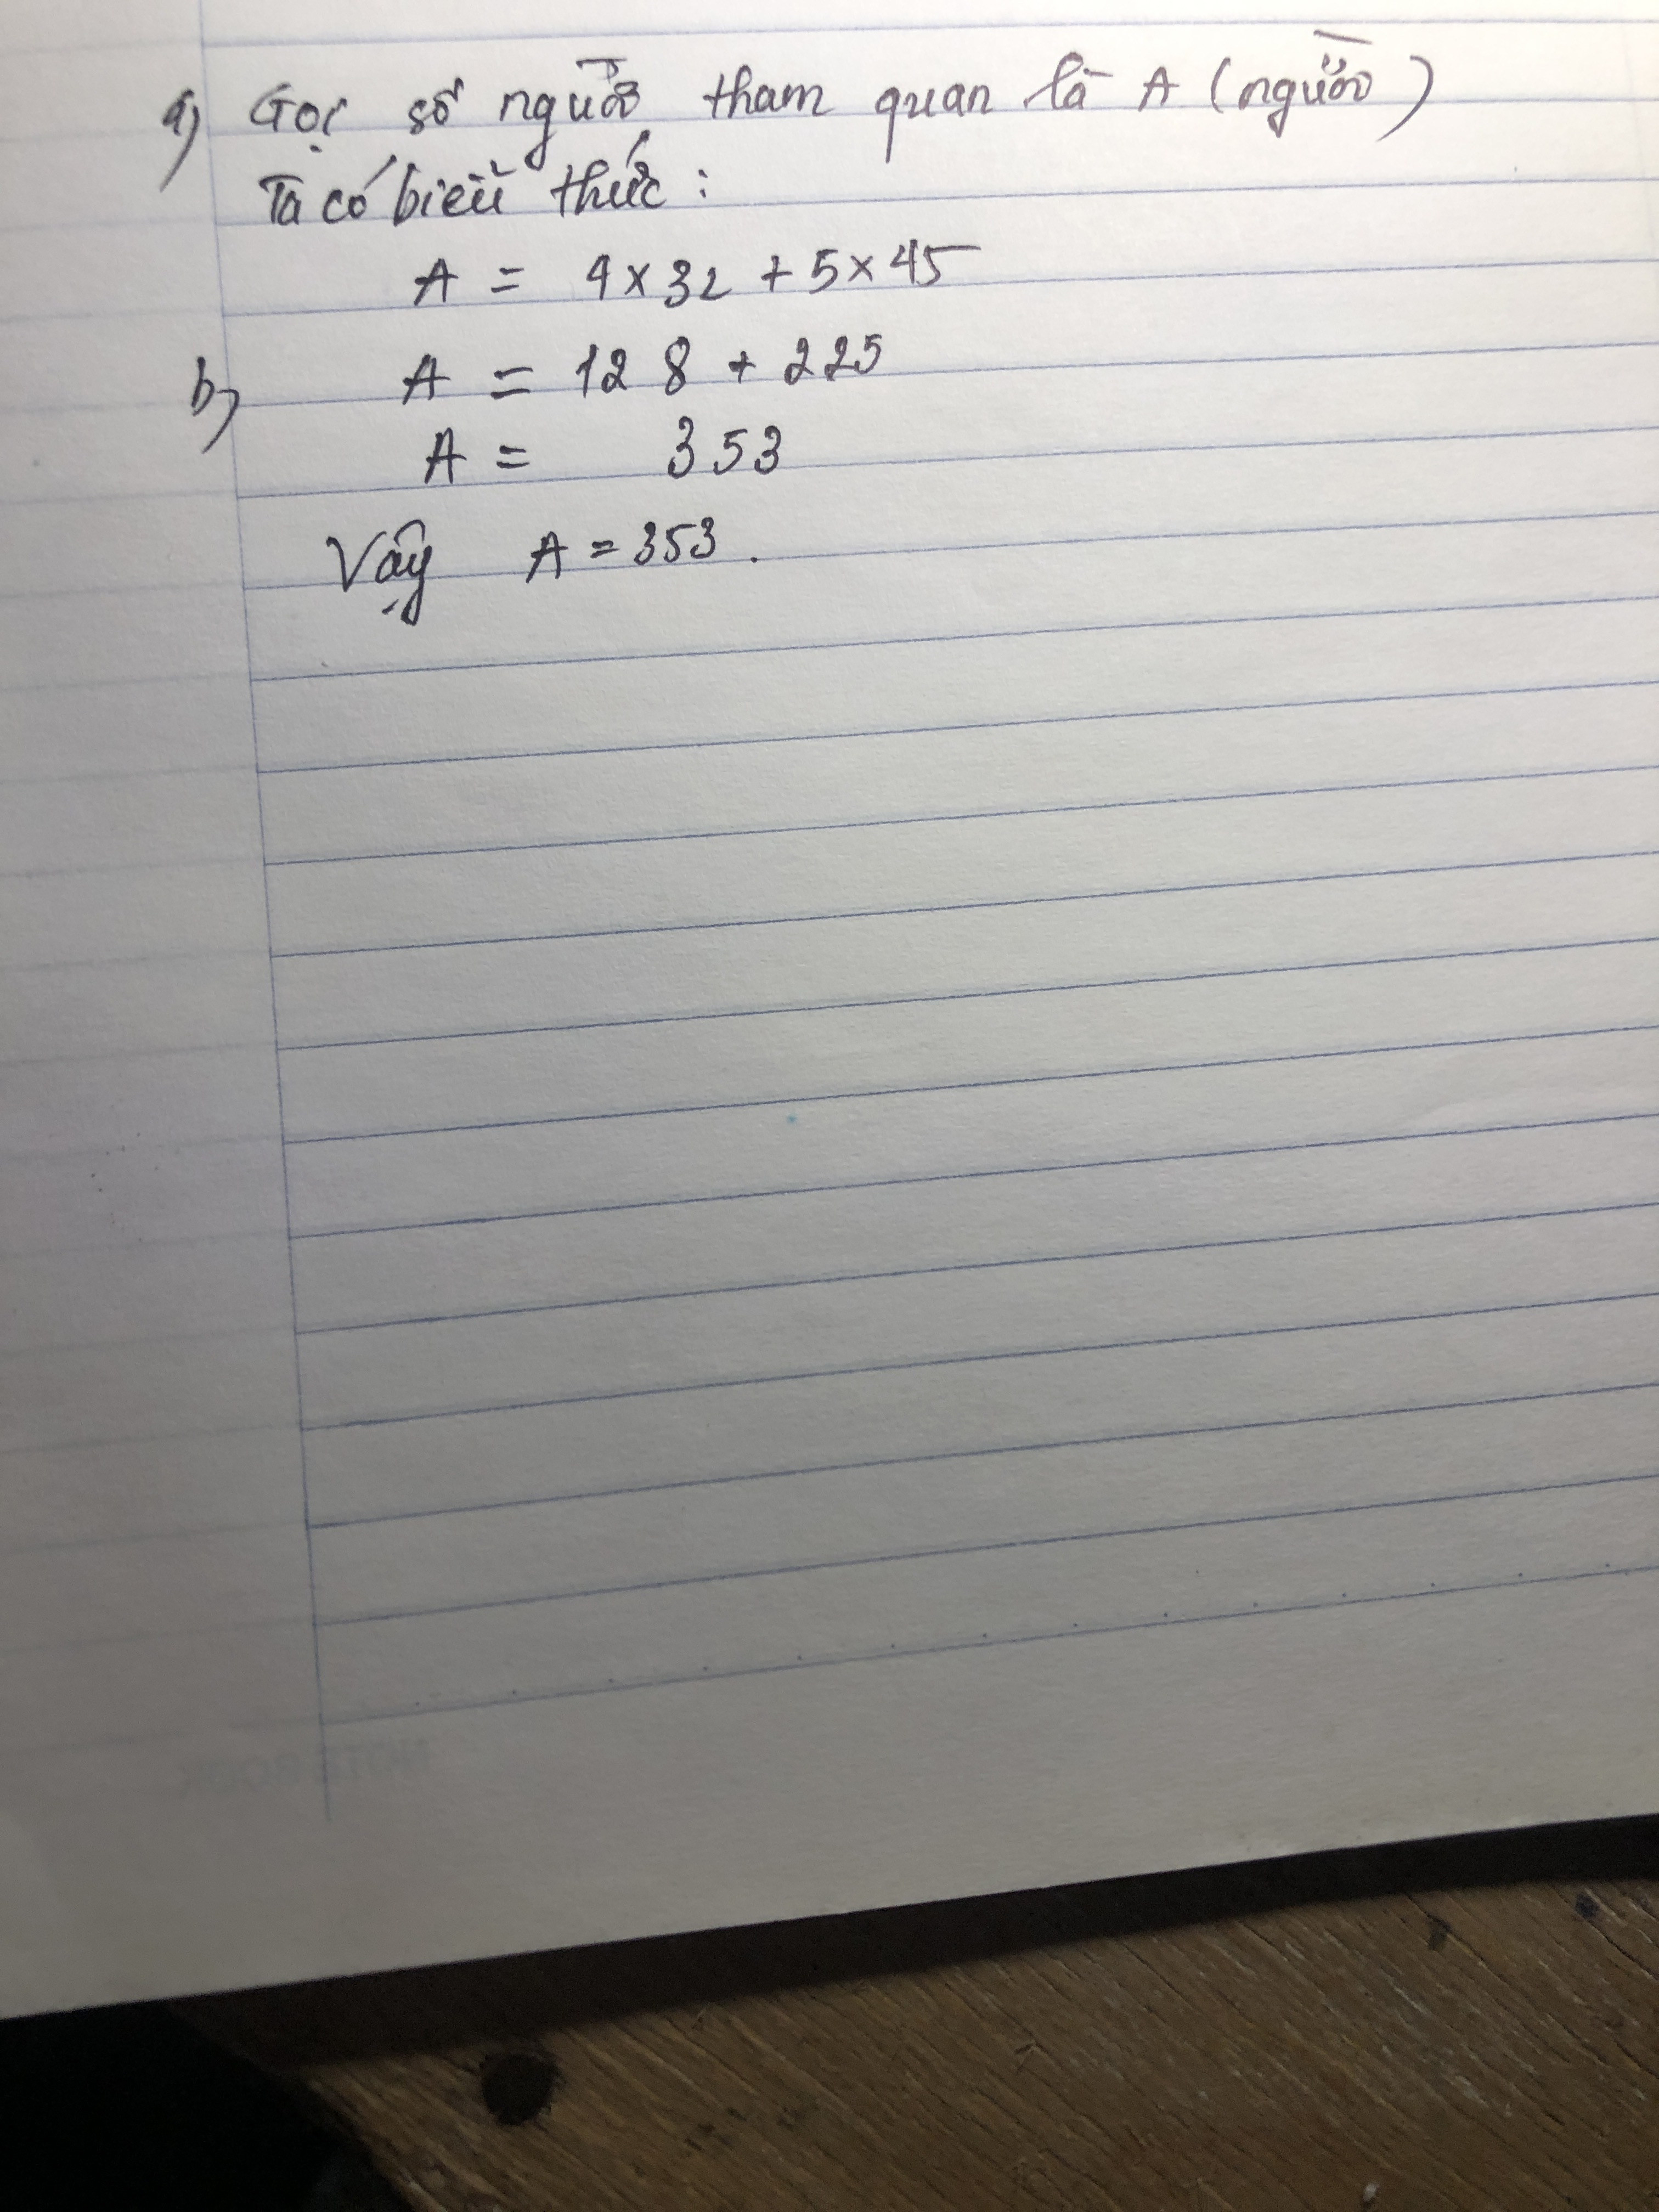 a) Gọi số người tham quan là A (người)
Ta có biểu thức:
A = 4 x 32 + 5 x 45
b) A = 128 + 225
A = 353
Vậy A = 353.